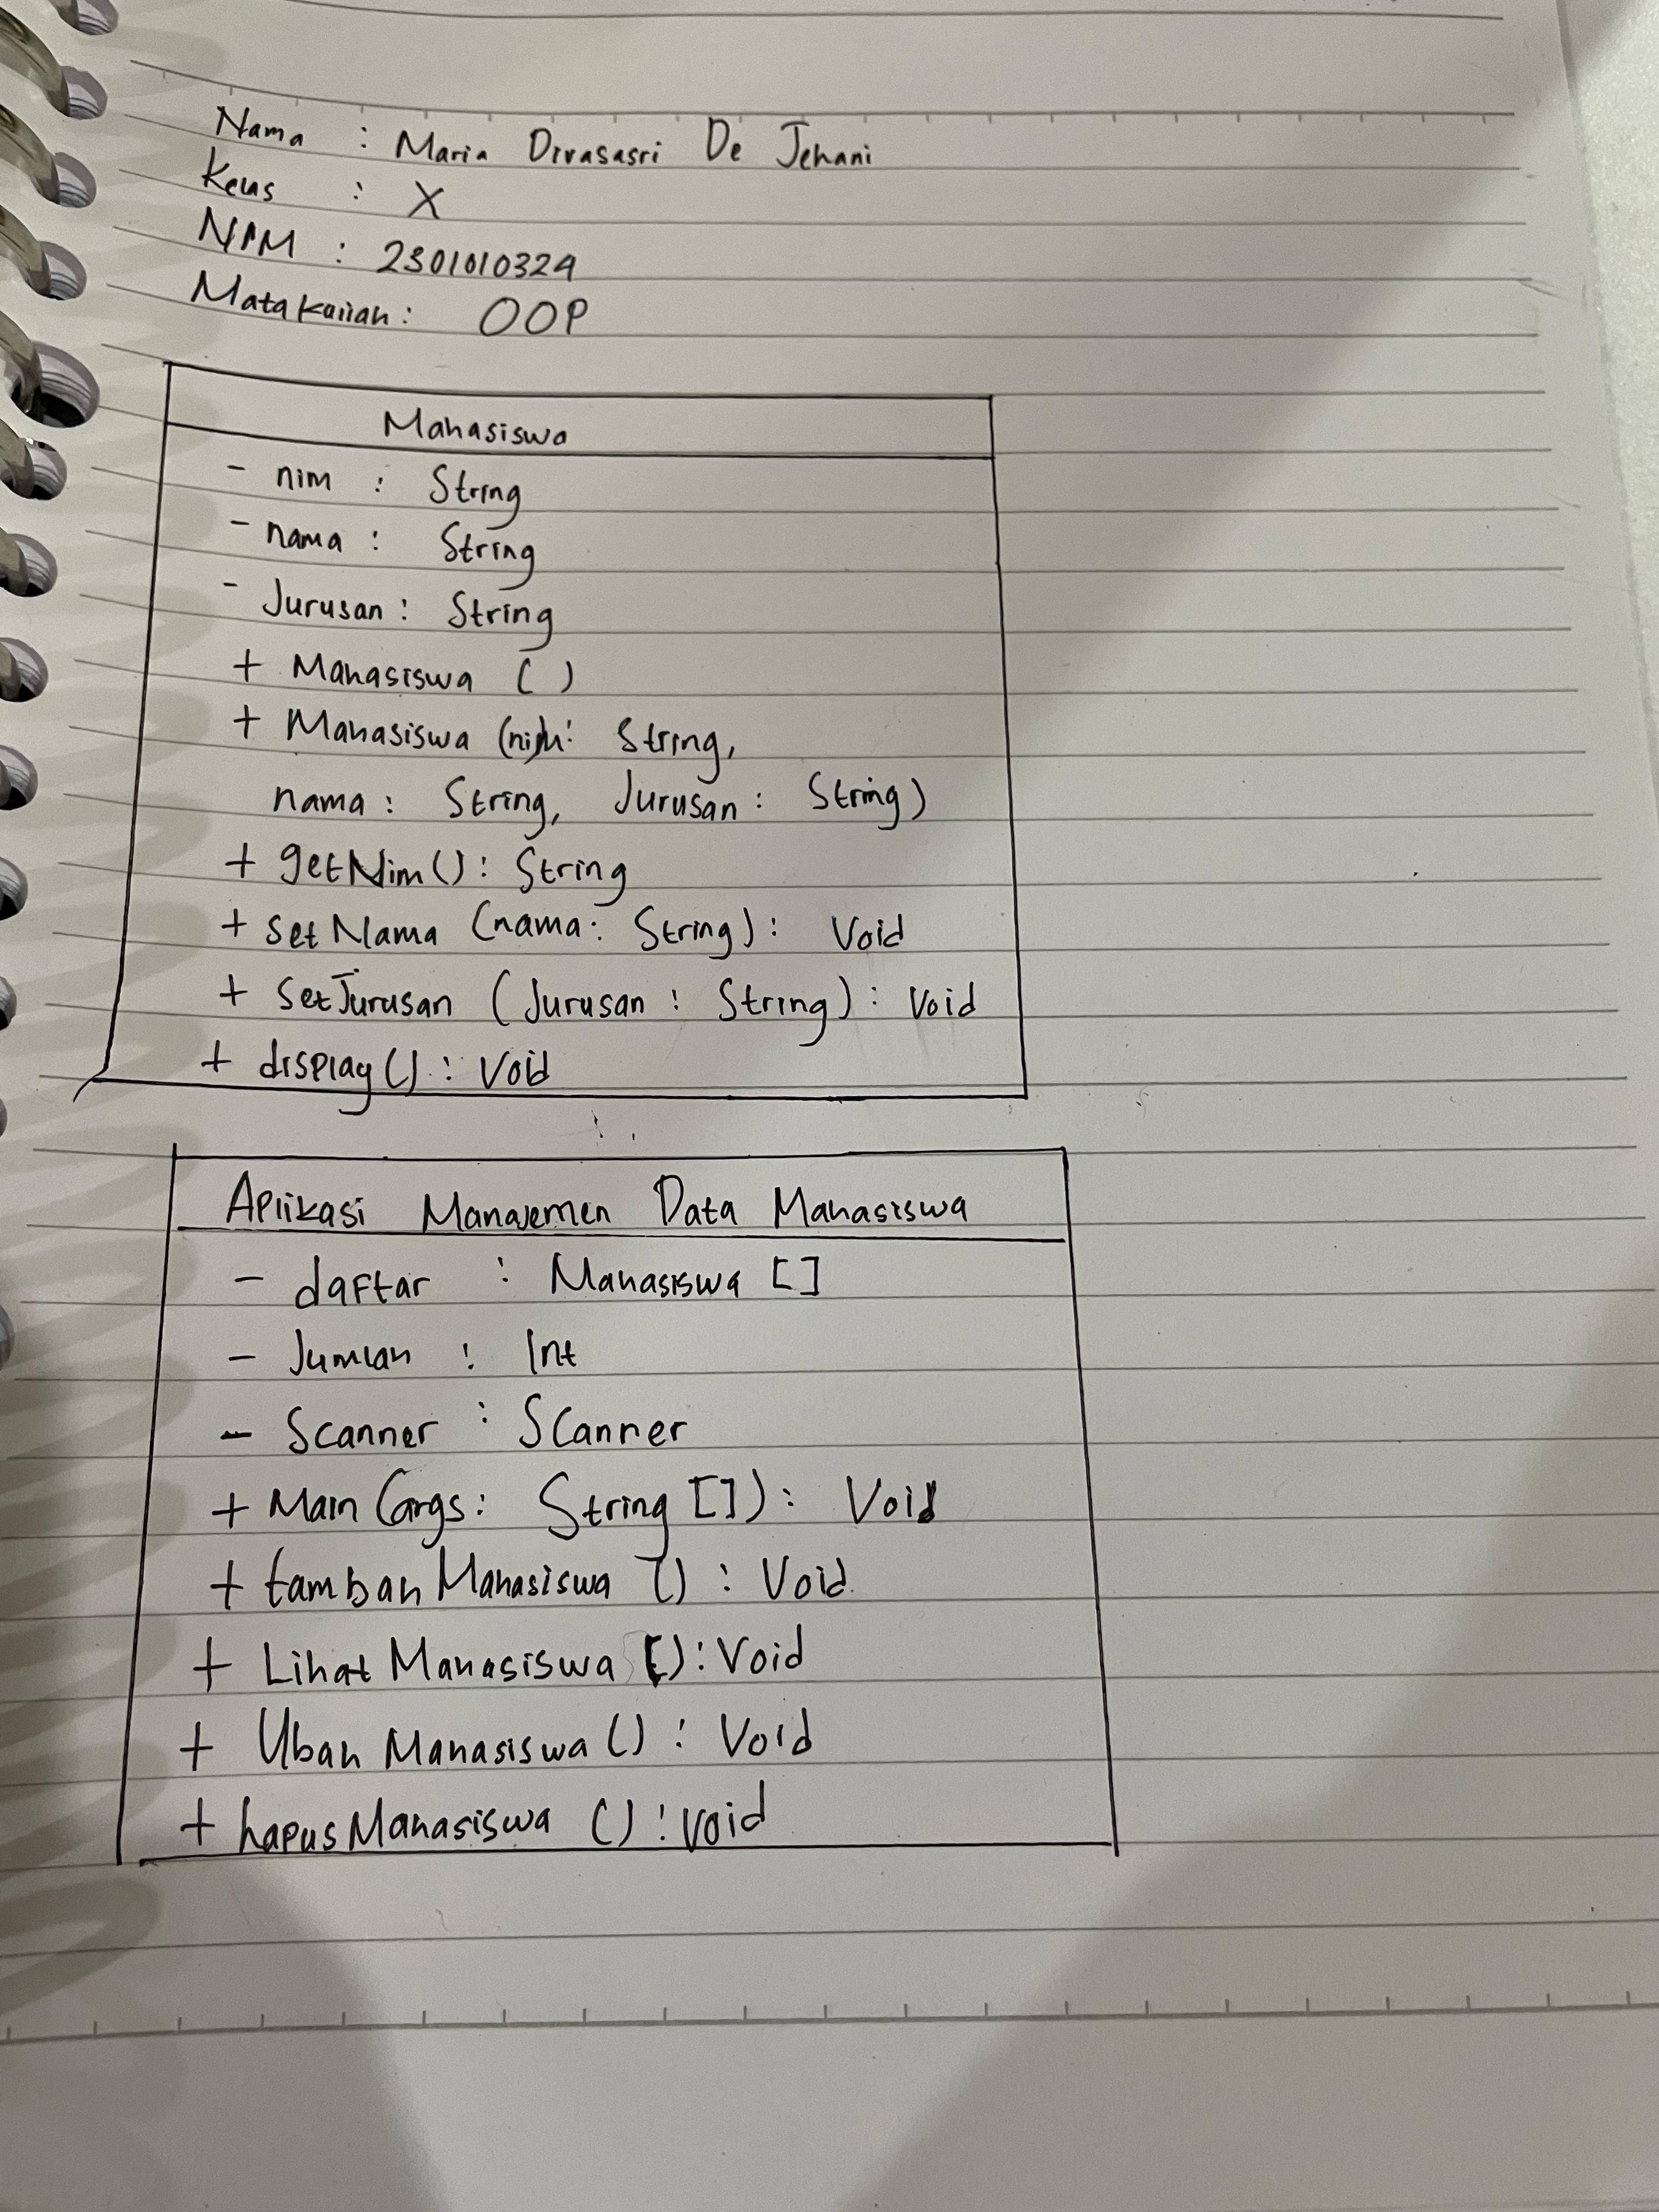 Nama : Maria Divasasri De Jehani
Kelas : X
NPM : 2301010324
Matakuliah : OOP
Mahasiswa
- nim : String
- nama : String
- Jurusan : String
+ Mahasiswa ( )
+ Mahasiswa (nim: String,
nama : String, Jurusan : String)
+ getNim() : String
+ setNama (nama : String) : Void
+ setJurusan (Jurusan : String) : Void
+ display() : Void
Aplikasi Manajemen Data Mahasiswa
- daftar : Mahasiswa []
- Jumlah : Int
- Scanner : Scanner
+ Main (args : String []) : Void
+ tambah Mahasiswa () : Void
+ Lihat Mahasiswa () : Void
+ Ubah Mahasiswa () : Void
+ hapus Mahasiswa () : Void